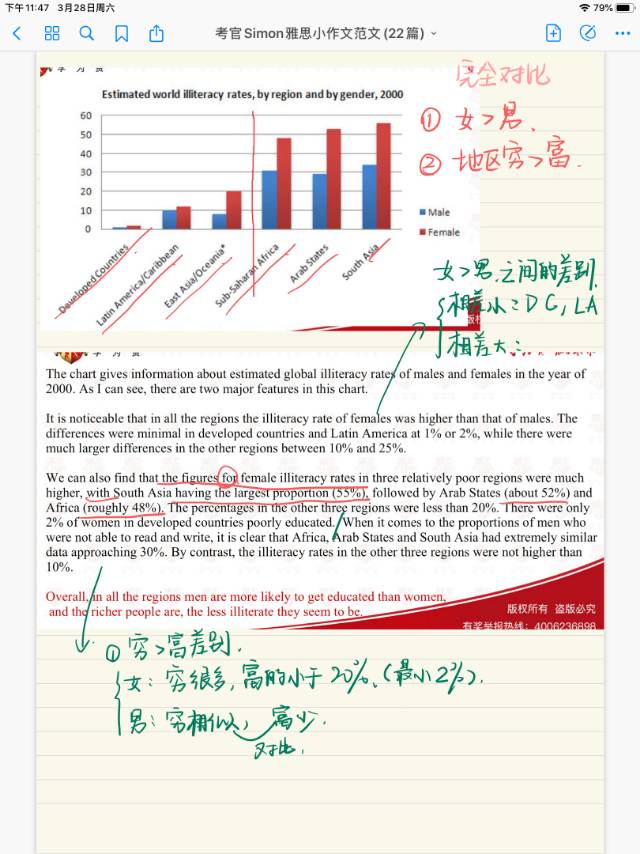 下午11:47 3月28日周六
79%
考官Simon雅思小作文范文(22篇)
学 为 贵
完全对比
Estimated world illiteracy rates, by region and by gender, 2000
① 女>男.
② 地区穷>富.
60
50
40
30
20
10
0
Male
Female
Developed Countries
Latin America/Caribbean
East Asia/Oceania*
Sub-Saharan Africa
Arab States
South Asia
女>男,之间的差别.
相差小:DC, LA
相差大:
版权
学 为 贵
The chart gives information about estimated global illiteracy rates of males and females in the year of
2000. As I can see, there are two major features in this chart.
It is noticeable that in all the regions the illiteracy rate of females was higher than that of males. The
differences were minimal in developed countries and Latin America at 1% or 2%, while there were
much larger differences in the other regions between 10% and 25%.
We can also find that the figures for female illiteracy rates in three relatively poor regions were much
higher, with South Asia having the largest proportion (55%), followed by Arab States (about 52%) and
Africa (roughly 48%). The percentages in the other three regions were less than 20%. There were only
2% of women in developed countries poorly educated. When it comes to the proportions of men who
were not able to read and write, it is clear that Africa, Arab States and South Asia had extremely similar
data approaching 30%. By contrast, the illiteracy rates in the other three regions were not higher than
10%.
Overall, in all the regions men are more likely to get educated than women,
and the richer people are, the less illiterate they seem to be.
版权所有 盗版必究
有奖举报热线: 4006236898
① 穷>富差别.
女: 穷很多, 富的小于20%, (最小2%).
男: 穷相似, 富少.
对比.